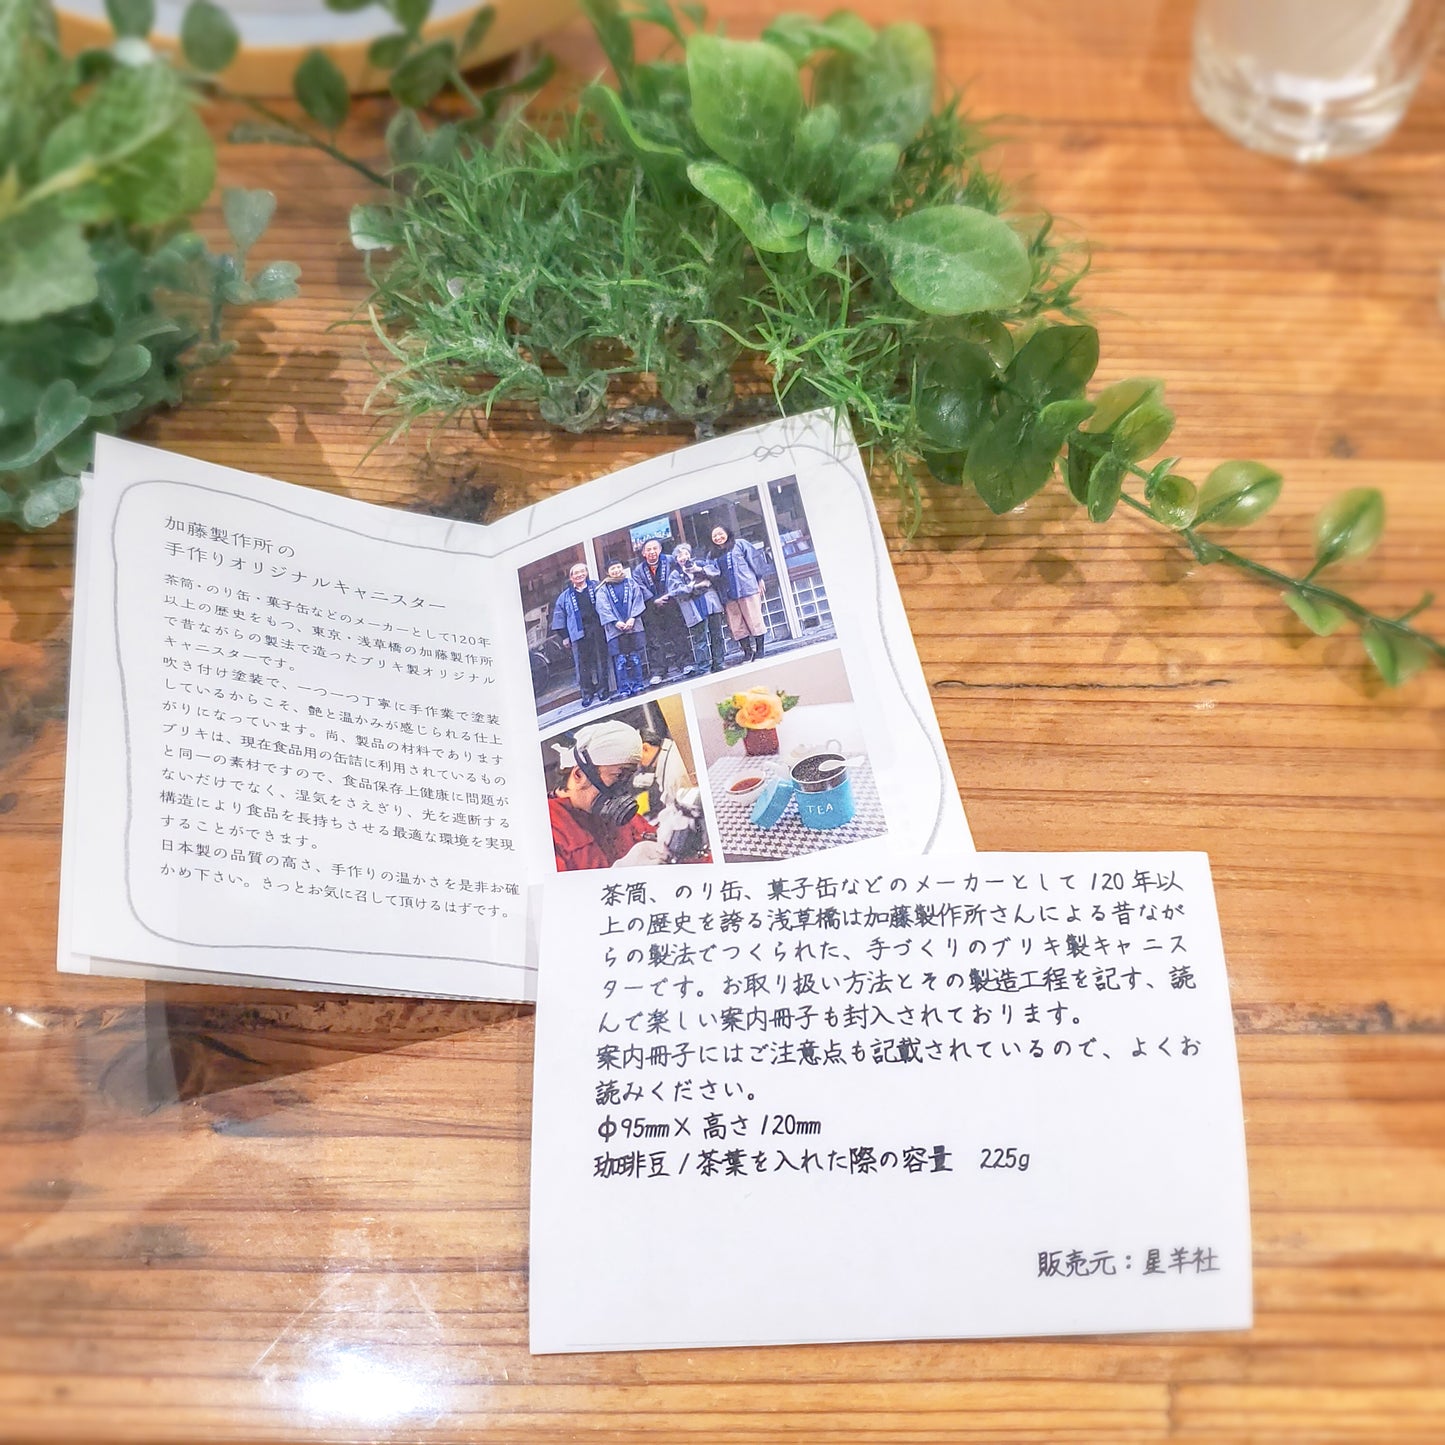 加藤製作所の
手作りオリジナルキャニスター
茶筒・のり缶・菓子缶などのメーカーとして120年
以上の歴史をもつ、東京・浅草橋の加藤製作所
で昔ながらの製法で造ったブリキ製オリジナル
キャニスターです。
吹き付け塗装で、一つ一つ丁寧に手作業で塗装
しているからこそ、艶と温かみが感じられる仕上
がりになっています。尚、製品の材料であります
ブリキは、現在食品用の缶詰に利用されているもの
と同一の素材ですので、食品保存上健康に問題が
ないだけでなく、湿気をさえぎり、光を遮断する
構造により食品を長持ちさせる最適な環境を実現
することができます。
日本製の品質の高さ、手作りの温かさを是非お確
かめ下さい。きっとお気に召して頂けるはずです。
TEA
茶筒、のり缶、菓子缶などのメーカーとして120年以
上の歴史を誇る浅草橋は加藤製作所さんによる昔なが
らの製法でつくられた、手づくりのブリキ製キャニス
ターです。お取り扱い方法とその製造工程を記す、読
んで楽しい案内冊子も封入されております。
案内冊子にはご注意点も記載されているので、よくお
読みください。
φ95mm×高さ120mm
珈琲豆/茶葉を入れた際の容量 225g
販売元：星羊社